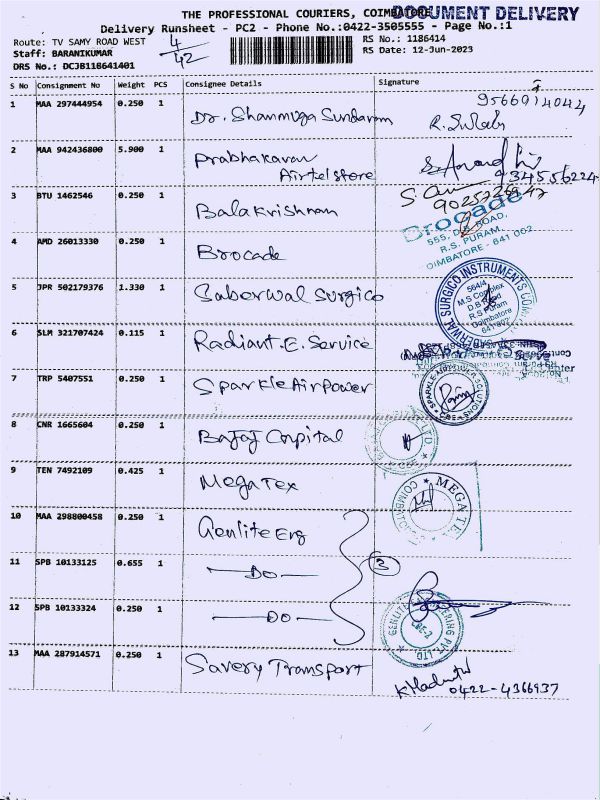 THE PROFESSIONAL COURIERS, COIMBATORE
DOCUMENT DELIVERY
Delivery Runsheet - PC2 - Phone No.:0422-3505555 - Page No.:1
Route: TV SAMY ROAD WEST
4/42
RS No.: 1186414
Staff: BARANIKUMAR
RS Date: 12-Jun-2023
DRS No.: DCJB118641401
S No Consignment No Weight PCS Consignee Details Signature
1 MAA 297444954 0.250 1 Dr. Shanmuga Sundaram 9566914044
2 MAA 942436800 5.900 1 Prabhakaran
Airtel store 934556224
3 BTU 1462546 0.250 1 Balakrishnan
4 AMD 26013330 0.250 1 Brocade
Brocade
555, D.B. ROAD,
R.S. PURAM,
COIMBATORE - 641 002
5 JPR 502179376 1.330 1 Saberwal Surgico
564/4
M.S Complex
D.B Road
R.S Puram
Coimbatore
641002
6 SLM 321707424 0.115 1 Radiant. E. Service
7 TRP 5407551 0.250 1 Sparkle Air Power
8 CNR 1665604 0.250 1 Bajaj Capital
9 TEN 7492109 0.425 1 Mega Tex
MEGA TEX
10 MAA 298800458 0.250 1 Genlite Eng
11 SPB 10133125 0.655 1 —DO— 3
12 SPB 10133324 0.250 1 —DO—
13 MAA 287914571 0.250 1 Savery Transport
0422-4366937